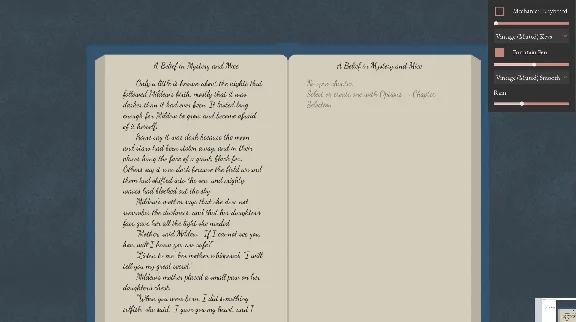 A Belief in Mystery and Mice
Only a little is known about the nights that
followed Mildew's birth, mostly that it was
darker than it had ever been. It lasted long
enough for Mildew to grow and become afraid
of it herself.
Some say it was dark because the moon
and stars had been stolen away, and in their
places hung the face of a giant, black fox.
Others say it was dark because the field around
them had shifted into the sea and mighty
waves had blocked out the sky.
Mildew's mother says that she does not
remember the darkness, and that her daughter's
face gave her all the light she needed.
"Mother," said Mildew, "If I can not see you,
how will I know you are safe?"
"Listen to me," her mother whispered, "I will
tell you my great secret."
Mildew's mother placed a small paw on her
daughter's chest.
"When you were born, I did something
selfish," she said. "I gave you my heart, and I
A Belief in Mystery and Mice
No open chapter.
Select or create one with Options - Chapter
Selection
Mechanical Keyboard
Vintage (Muted) Keys
Fountain Pen
Vintage (Muted) Smooth
Rain